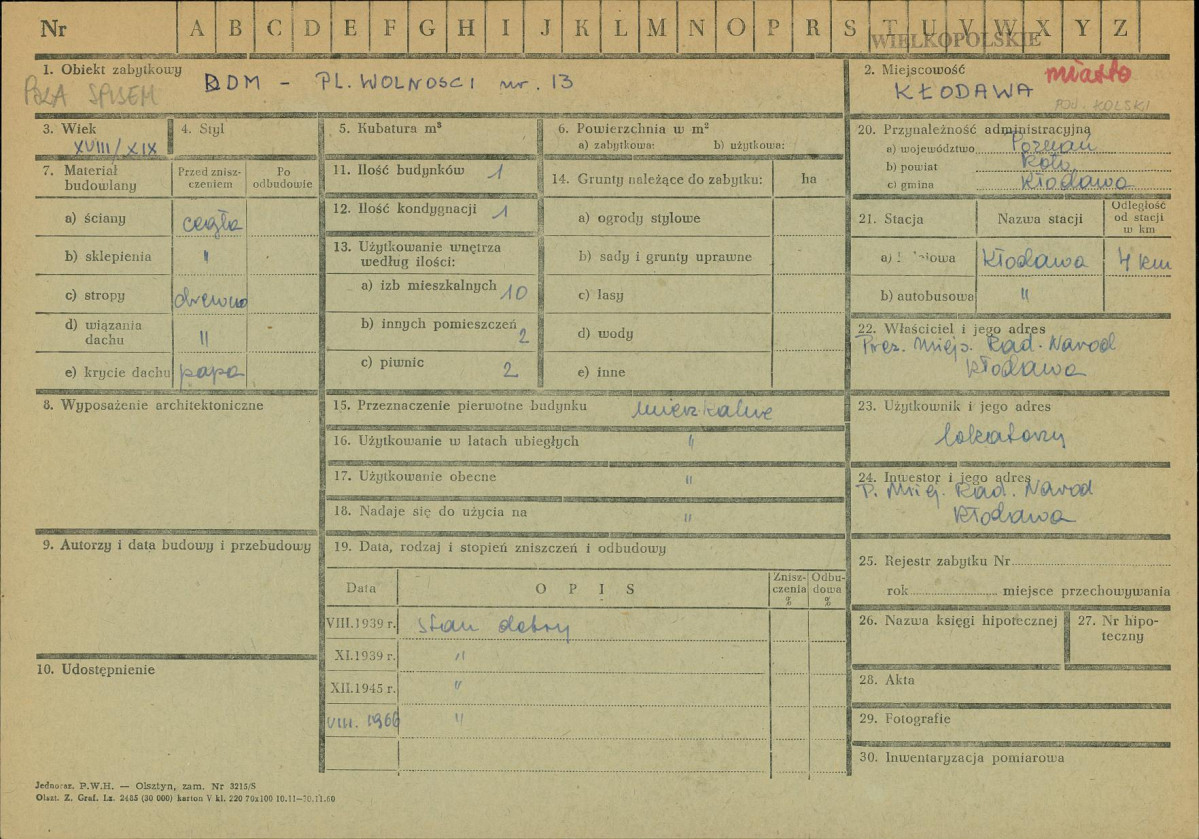 Nr A B C D E F G H I J K L M N O P R S T U V W X Y Z
WIELKOPOLSKIE
1. Obiekt zabytkowy DOM - PL. WOLNOSCI nr. 13
POZA SPISEM
2. Miejscowość miasto
KŁODAWA
POW. KOLSKI
3. Wiek
XVIII/XIX
4. Styl
5. Kubatura m³
6. Powierzchnia w m²
a) zabytkowa: b) użytkowa:
7. Materiał budowlany
Przed zniszczeniem
Po odbudowie
a) ściany cegła
b) sklepienia "
c) stropy drewno
d) wiązania dachu "
e) krycie dachu papa
8. Wyposażenie architektoniczne
9. Autorzy i data budowy i przebudowy
10. Udostępnienie
11. Ilość budynków 1
12. Ilość kondygnacji 1
13. Użytkowanie wnętrza
według ilości:
a) izb mieszkalnych 10
b) innych pomieszczeń 2
c) piwnic 2
14. Grunty należące do zabytku: ha
a) ogrody stylowe
b) sady i grunty uprawne
c) lasy
d) wody
e) inne
15. Przeznaczenie pierwotne budynku mieszkalne
16. Użytkowanie w latach ubiegłych "
17. Użytkowanie obecne "
18. Nadaje się do użycia na "
19. Data, rodzaj i stopień zniszczeń i odbudowy
Data O P I S Zniszczenia % Odbudowa %
VIII.1939 r. stan dobry
XI.1939 r. "
XII.1945 r. "
VIII. 1966 "
20. Przynależność administracyjna
a) województwo Poznań
b) powiat Koło
c) gmina Kłodawa
21. Stacja Nazwa stacji Odległość od stacji w km
a) Kłodawa 4 km
b) autobusowa "
22. Właściciel i jego adres
Prez. Miejs. Rad. Narod
Kłodawa
23. Użytkownik i jego adres
lokatorzy
24. Inwestor i jego adres
P. Miej. Rad. Narod
Kłodawa
25. Rejestr zabytku Nr
rok miejsce przechowywania
26. Nazwa księgi hipotecznej
27. Nr hipoteczny
28. Akta
29. Fotografie
30. Inwentaryzacja pomiarowa
Jednoraz. P.W.H. — Olsztyn, zam. Nr 3215/S
Olszt. Z. Graf. Lz. 2485 (30 000) karton V kl. 220 70x100 10.11—20.11.60